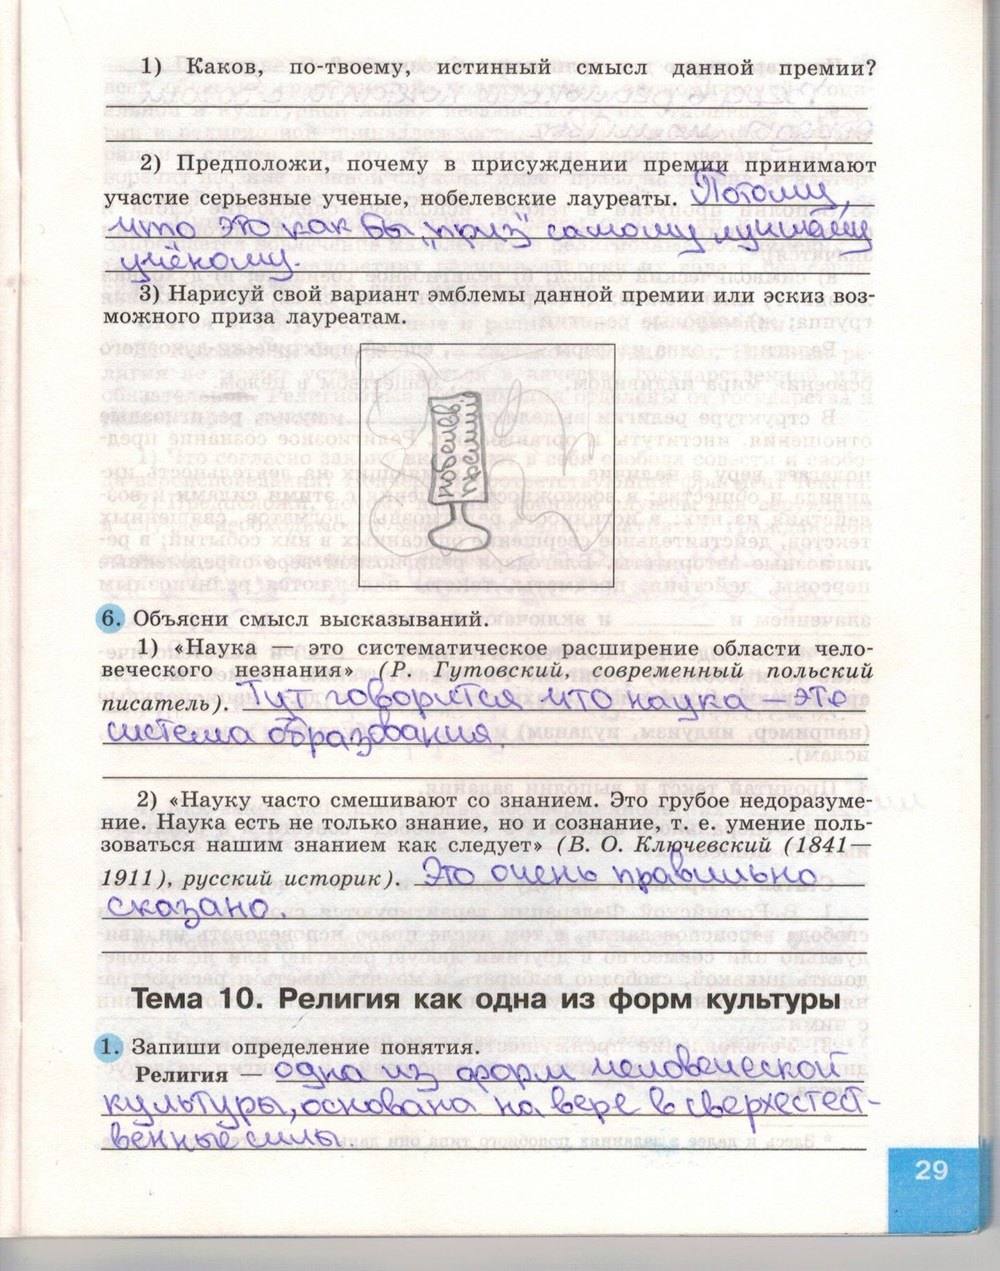 1) Каков, по-твоему, истинный смысл данной премии?
2) Предположи, почему в присуждении премии принимают
участие серьезные ученые, нобелевские лауреаты. Потому,
что это как бы „приз" самому лучшему
учёному.
3) Нарисуй свой вариант эмблемы данной премии или эскиз воз-
можного приза лауреатам.
нобелев.
премия
6. Объясни смысл высказываний.
1) «Наука — это систематическое расширение области чело-
веческого незнания» (Р. Гутовский, современный польский
писатель). Тут говорится что наука — это
система образования.
2) «Науку часто смешивают со знанием. Это грубое недоразуме-
ние. Наука есть не только знание, но и сознание, т. е. умение поль-
зоваться нашим знанием как следует» (В. О. Ключевский (1841—
1911), русский историк). Это очень правильно
сказано.
Тема 10. Религия как одна из форм культуры
1. Запиши определение понятия.
Религия — одна из форм человеческой
культуры, основана на вере в сверхестест-
венные силы.
29